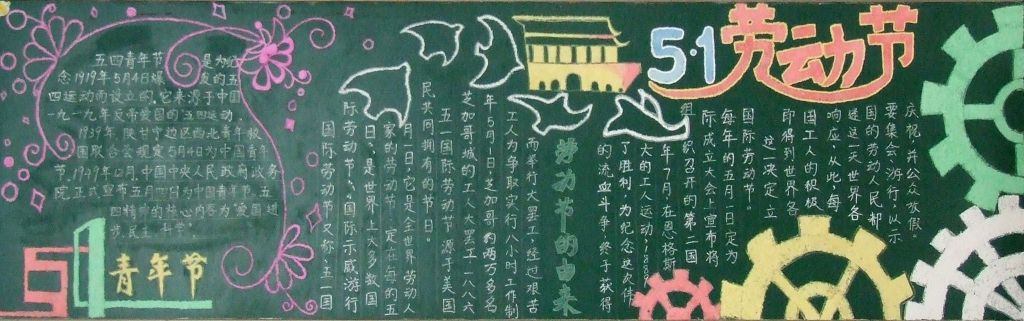 五四青年节 是为纪
念1919年5月4日爆 发的五
四运动而设立的,它来源于中国
一九一九年反帝爱国的"五四运动,
1939年,陕甘宁边区西北青年救
国联合会规定5月4日为中国青年
节,1949年12月,中国中央人民政府政务
院正式宣布五月四日为中国青年节,五
四精神的核心内容为"爱国进
步,民主,科学".
54青年节
5·1劳动节
国际劳动节又称五一国
际劳动节"、"国际示威游行
日",是世界上大多数国
家的劳动节。定在每年的五
月一日,它是全世界劳动人
民共同拥有的节日。
五一国际劳动节源于美国
芝加哥城的工人大罢工一八八六
年5月1日,芝加哥的两万多名
工人为争取实行八小时工作制
而举行大罢工,经过艰苦
劳动节的由来
的流血斗争,终于获得
了胜利,为纪念这次伟
大的工人运动,1889
年7月,在恩格斯
组织召开的第二国
际成立大会上宣布将
每年的五月一日定为
国际劳动节
这一决定立
即得到世界各
国工人的积极
响应,从此,每
逢这一天世界各
国的劳动人民都
要集会,游行,以示
庆祝,并公众放假。